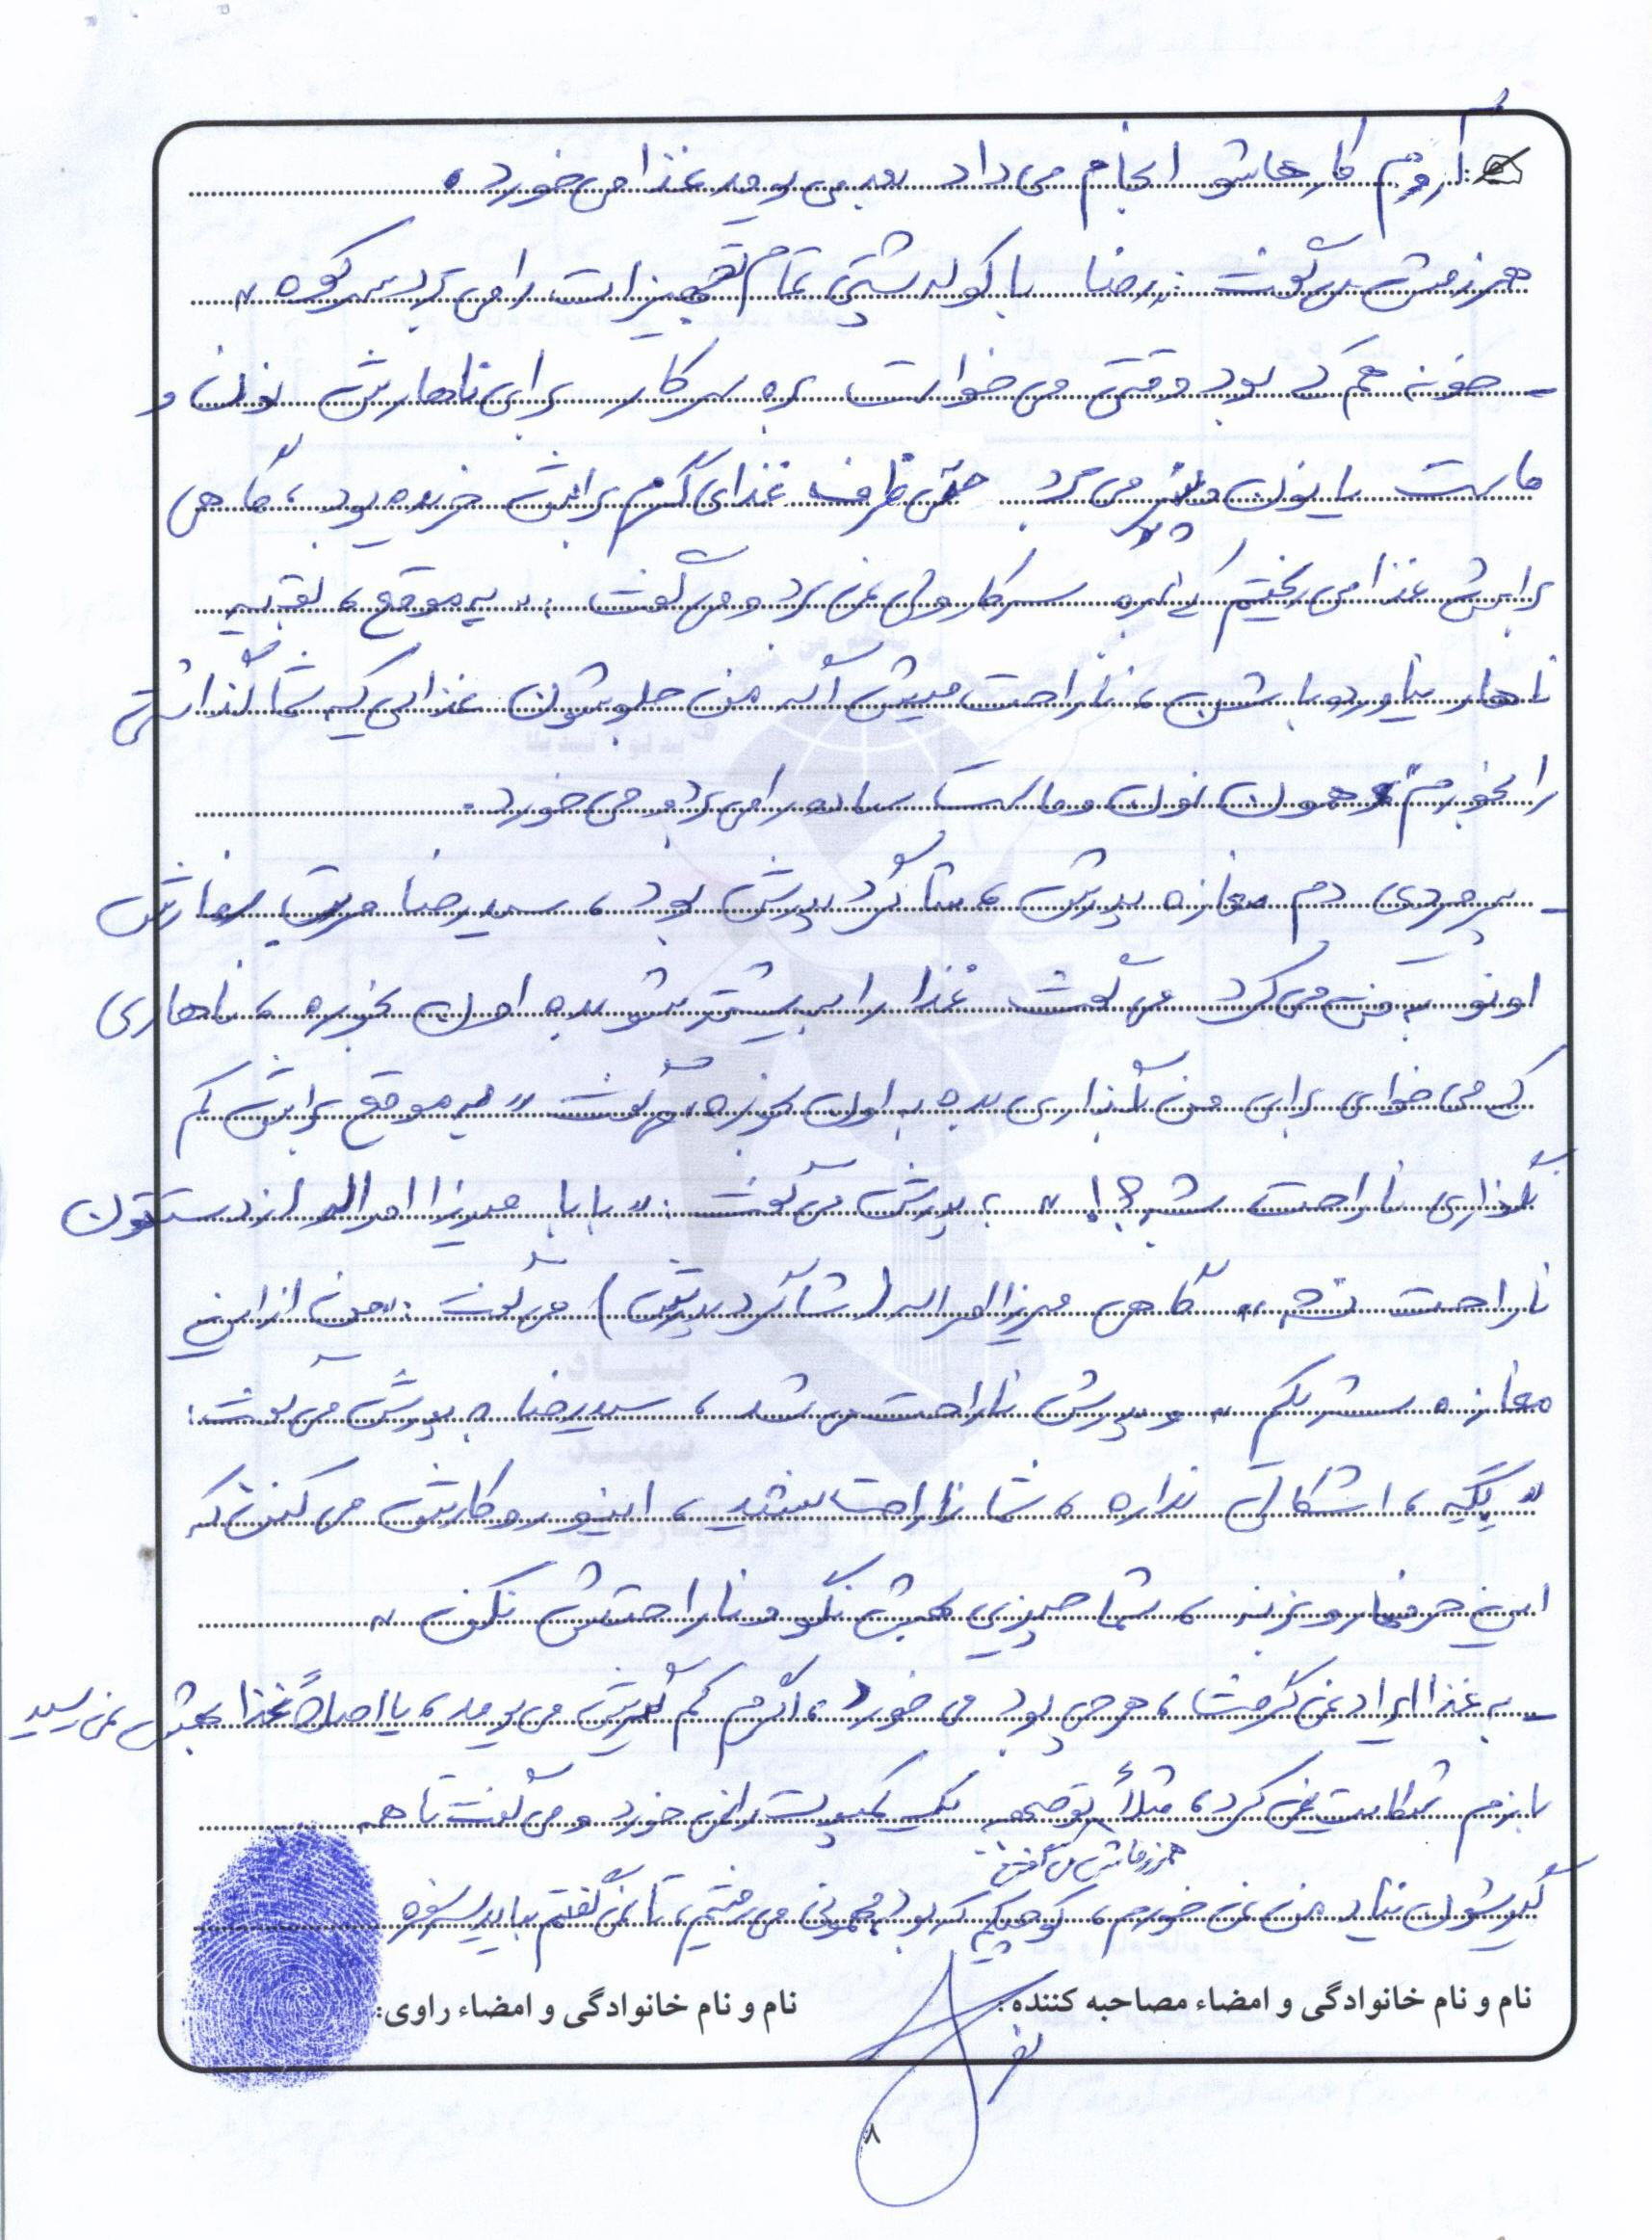 آروم کارهاشو انجام می داد بعد می یومد غذا می خورد.
همرزمش می گفت: «رضا با کوله پشتی تمام تجهیزات را می برد سر کوه»
- خونه هم که بود وقتی می خواست بره سر کار برای ناهارش نون و
ماست یا نون و پنیر می برد حتی ظرف غذای گرم براش خریده بود، گاهی
برایش غذا می ریختم که ببره سر کار ولی نمی برد و می گفت: «یه موقع، بقیه
ناهار نیاورده باشن، ناراحت میشن اگه من جلوشون غذایی که شما گذاشتی
را بخورم» همون نون و ماست ساده را می برد و می خورد.
- پیرمردی دم مغازه پدرش، شاگرد پدرش بود، سید رضا مرتب سفارش
اونو به من می کرد می گفت غذا را بیشترشو بده اون بخوره، ناهاری
که می خوای برای من بگذاری بده به اون بخوره، می گفت «یه موقع براش کم
بگذاری ناراحت شه؟!» ، پدرش می گفت: «بابا میرزا امراله از دستتون
ناراحت نشه» گاهی میرزا امراله (شاگرد پدرش) می گفت: «من از این
مغازه شریکم» و پدرش ناراحت می شد، سید رضا به پدرش می گفت:
«بگیه، اشکالی نداره، شما ناراحت نشید، اینو روکارش می کنن که
این حرفها رو بزنه، شما چیزی بهش نگو و ناراحتش نکن»
- به غذا ایراد نمی گرفت، هرچی بود می خورد، اگرم کم گیرش می یومد، یا اصلاً غذا بهش نمی رسید
بازم شکایت نمی کرد، مثلاً تو جبهه یک کمپوت را نمی خورد و می گفت تا همه
همرزماش می گفتن:
گیرشون نیاد من نمی خورم، کوچیکم که بود مهمونی می رفتیم، تا نمی گفتم بیاید سر سفره
نام و نام خانوادگی و امضاء مصاحبه کننده:
نام و نام خانوادگی و امضاء راوی:
۸